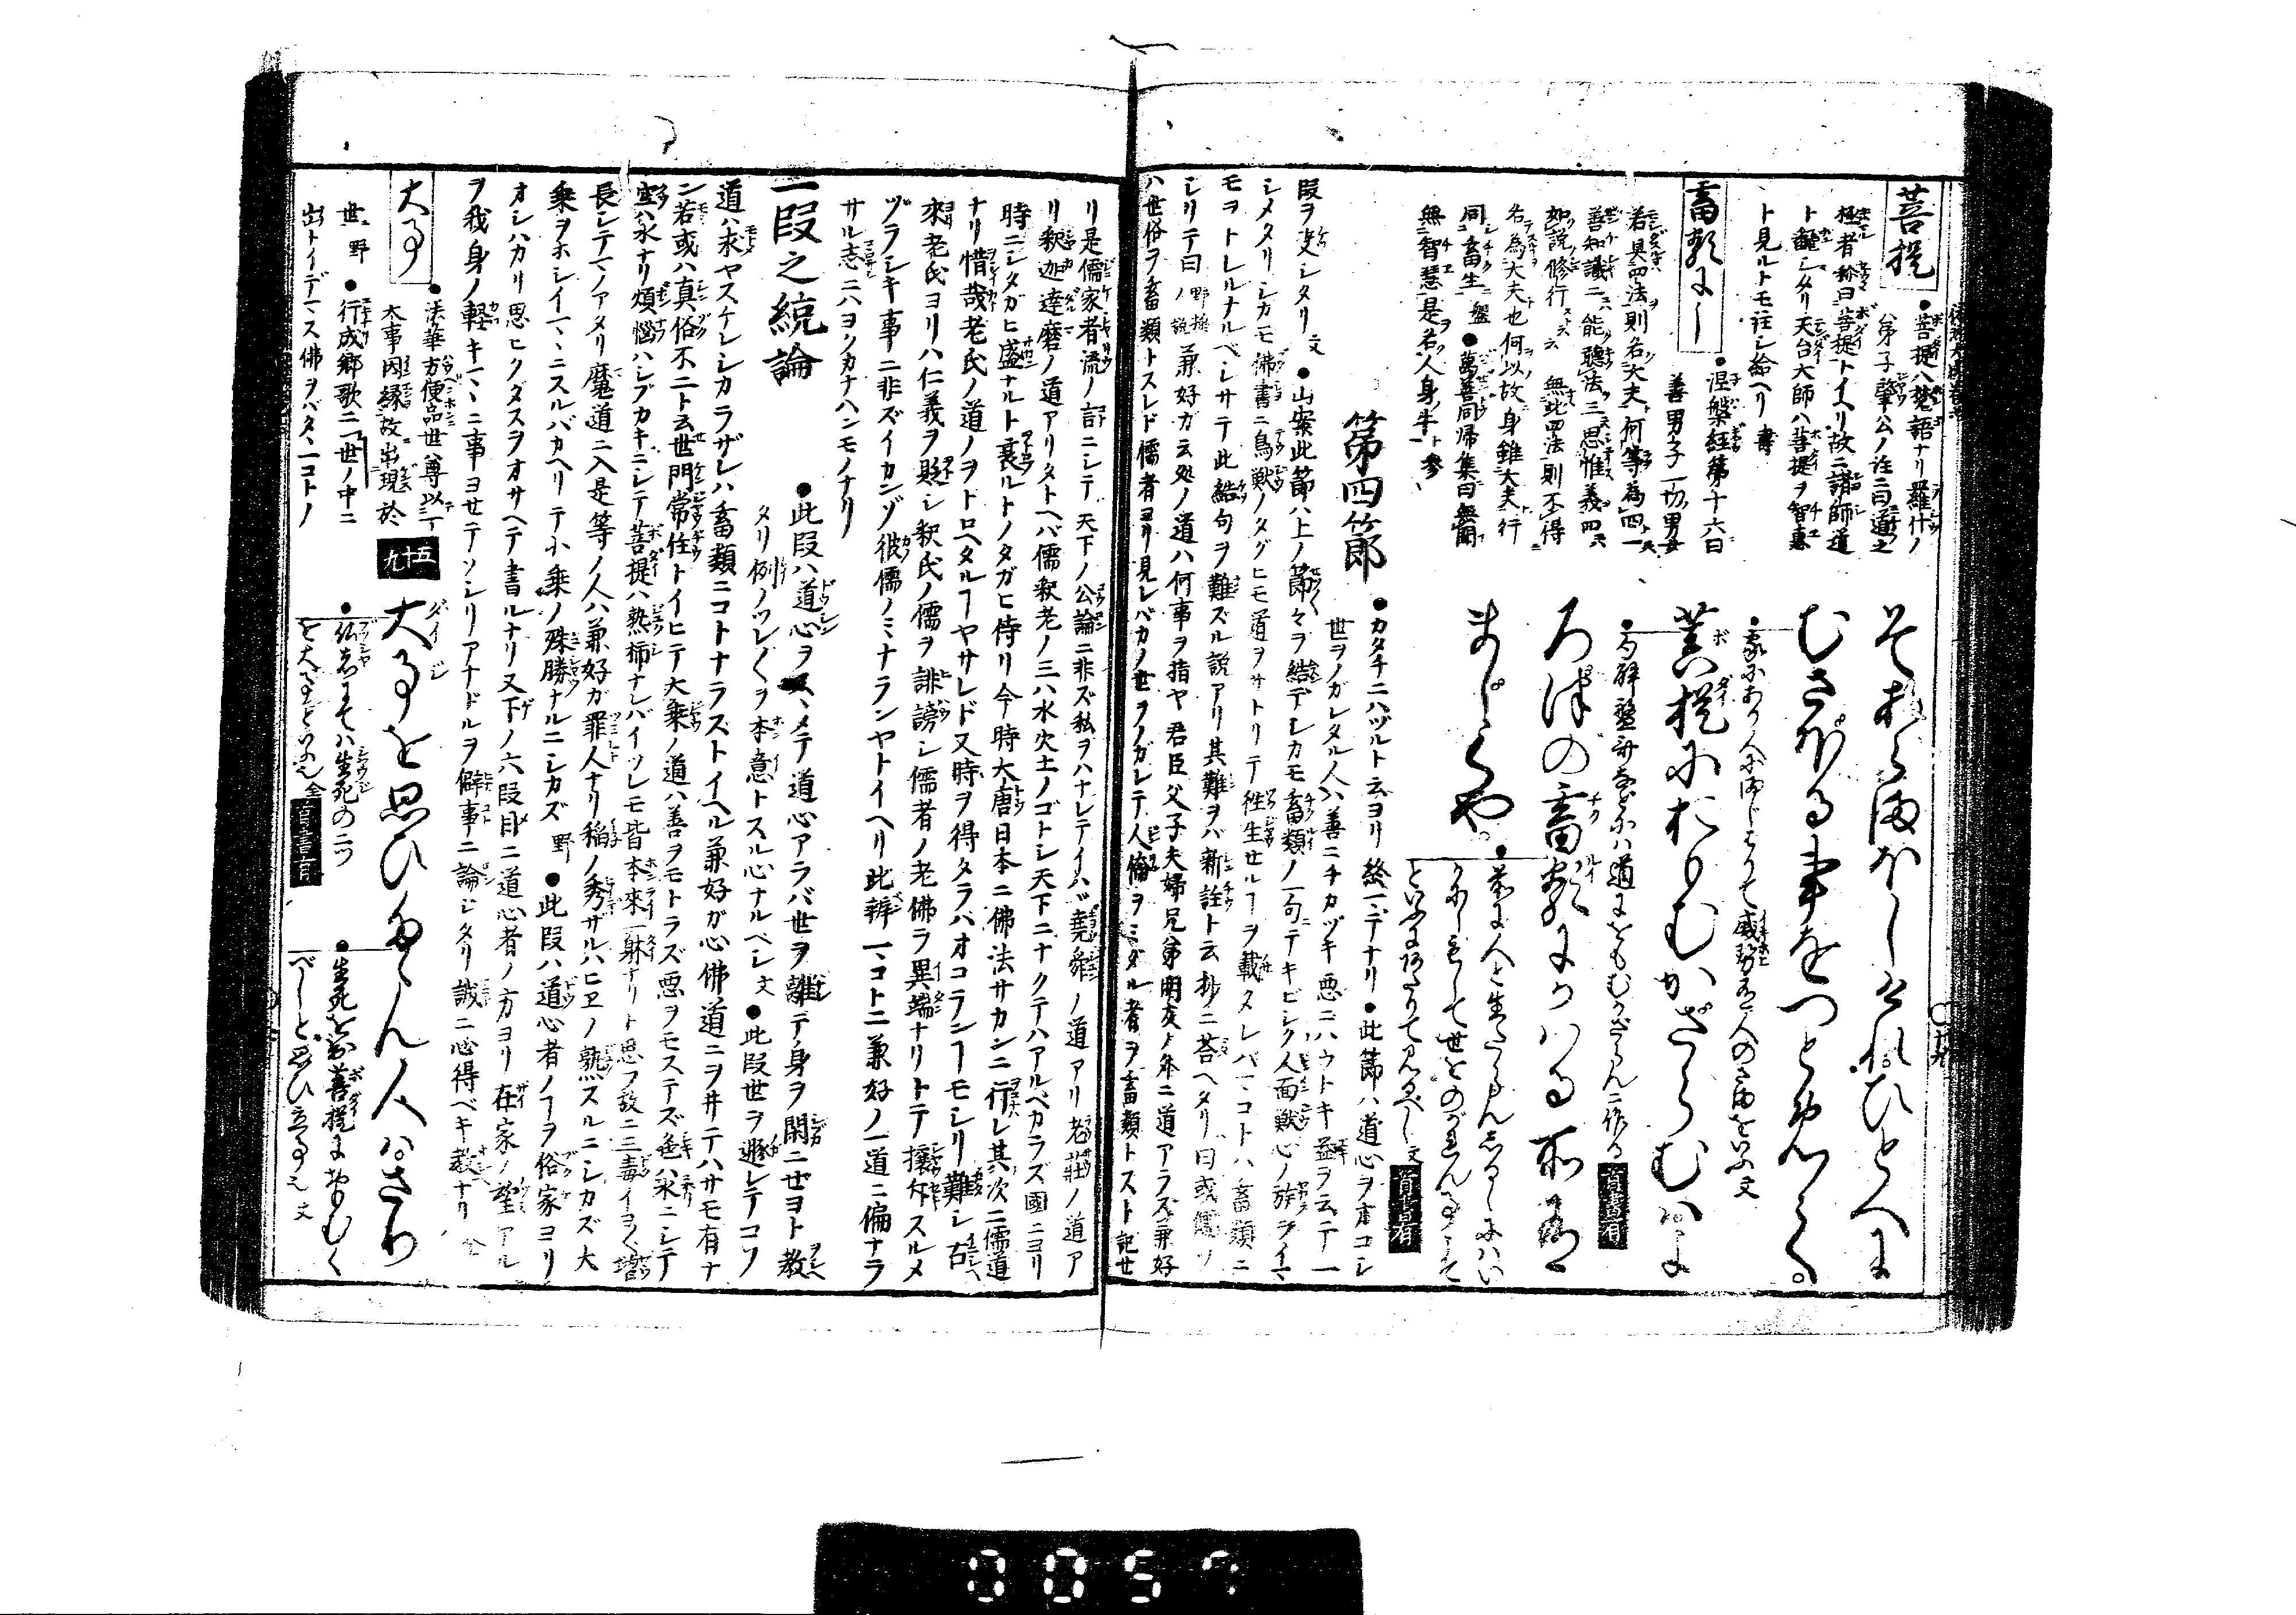 菩提
●菩提ハ梵語ナリ羅什ノ
ハ弟子肇公ノ註ニ曰道之
極者称曰菩提トイヘリ故ニ諸師道
ト翻シタリ天台大師ハ菩提ヲ智恵
ト見ルトモ註シ給ヘリ 壽
畜類に
●涅槃経第十六曰
善男子一切男女
若具四法則名丈夫何等為四一
善知識二能聴法三思惟義四
如説修行 云 無此四法則不得
名為丈夫也何以故身雖丈夫行
同畜生 盤 ●萬善同帰集曰無聞
無智慧是名人身牛 参
むさぼる事をつとめて
●家にある人にまじはりて威勢有人のさまをいふ 文
菩提におもむかざらむはよ
ろづの畜類にかはる所有
まじくや。
といふにあたりて見るべし 文 首書有
第四節
●カタチニハヅルト云ヨリ終マデナリ●此節ハ道心ヲオコシ
世ヲノガレタル人ハ善ニチカヅキ悪ニハウトキ益ヲ云テ一
段ヲ決シタリ 文 ●山案此節ハ上ノ節々ヲ結デシカモ畜類ノ一句ニテキビシク人面獣心ノ族ヲイマ
シメタリシカモ佛書ニ鳥獣ノタグヒモ道ヲサトリテ往生セルヿヲ載タレバマコトハ畜類ニ
モヲトレルナルベシサテ此結句ヲ難ズル説アリ其難ヲバ新註ト云抄ニ荅ヘタリ曰或儒ソ
シリテ曰 野槌ノ説 兼好ガ云処ノ道ハ何事ヲ指ヤ君臣父子夫婦兄弟朋友ノ外ニ道アラズ兼好
ハ世俗ヲ畜類トスレド儒者ヨリ見レバカノ世ヲノガレテ人倫ヲミダル者ヲ畜類トスト記セ
リ是儒家者流ノ言ニシテ天下ノ公論ニ非ズ私ヲハナレテイハヾ堯舜ノ道アリ老荘ノ道ア
リ釈迦達磨ノ道アリタトヘバ儒釈老ノ三ハ水火土ノゴトシ天下ニナクテハアルベカラズ國ニヨリ
時ニシタガヒ盛ナルト衰ルトノタガヒ侍リ今時大唐日本ニ佛法サカンニ行レ其次ニ儒道
ナリ惜哉老氏ノ道ノヲトロヘタルヿヤサレド又時ヲ得タラバオコランヿモシリ難シ古
来老氏ヨリハ仁義ヲ貶シ釈氏ノ儒ヲ誹謗シ儒者ノ老佛ヲ異端ナリトテ攘斥スルメ
ヅラシキ事ニ非ズイカンゾ彼儒ノミナランヤトイヘリ此辨マコトニ兼好ノ一道ニ偏ナラ
サル志ニハヨクカナハンモノナリ
一段之統論
●此段ハ道心ヲススメテ道心アラバ世ヲ離テ身ヲ閑ニセヨト教
タリ例ノツレ〱ヲ本意トスル心ナルベシ 文 ●此段世ヲ遁レテコソ
道ハ求ヤスケレシカラザレハ畜類ニコトナラズトイヘル兼好ガ心佛道ニヲヰテハサモ有ナ
ン若或ハ真俗不二ト云世門常住トイヒテ大乗ノ道ハ善ヲモトラズ悪ヲモステズ色ハ氷ニシテ
空ハ水ナリ煩悩ハシブカキニシテ菩提ハ熟柿ナレバイツレモ皆本来一躰ナリト思フ故ニ三毒イヨ〱増
長シテマノアタリ魔道ニ入是等ノ人ハ兼好ガ罪人ナリ稲ノ秀ザルハヒヱノ熟スルニシカズ大
乗ヲホシイマヽニスルバカヘリテ小乗ノ殊勝ナルニシカズ 野 ●此段ハ道心者ノヿヲ俗家ヨリ
オシハカリ思ヒクダスヲオサヘテ書ルナリ又下ノ六段目ニ道心者ノ方ヨリ在家ノ望アル
ヲ我身ノ軽キマヽニ事ヨセテソシリアナドルヲ僻事ニ論ジタリ誠ニ心得ベキ教ナリ 仝
大事
●法華方便品世尊以一
大事因縁故出現於
世 野 ●行成郷歌ニ世ノ中ニ
出トイデマス佛ヲバタヽ一コトノ
五十九
大事を思ひたゝん人はさり
●佛者にては生死の二つ
を大事といふ也 仝 首書有
●生死を出菩提におもむく
べしと思ひ立事也 文
0057